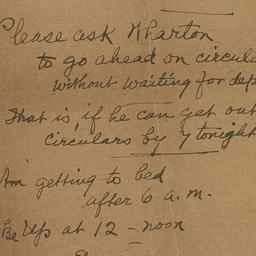 Please ask Wharton
to go ahead on circula
without waiting for dep
That is, if he can get out
circulars by 7 tonight
Am getting to bed
after 6 a.m.
Be Up at 12 - noon